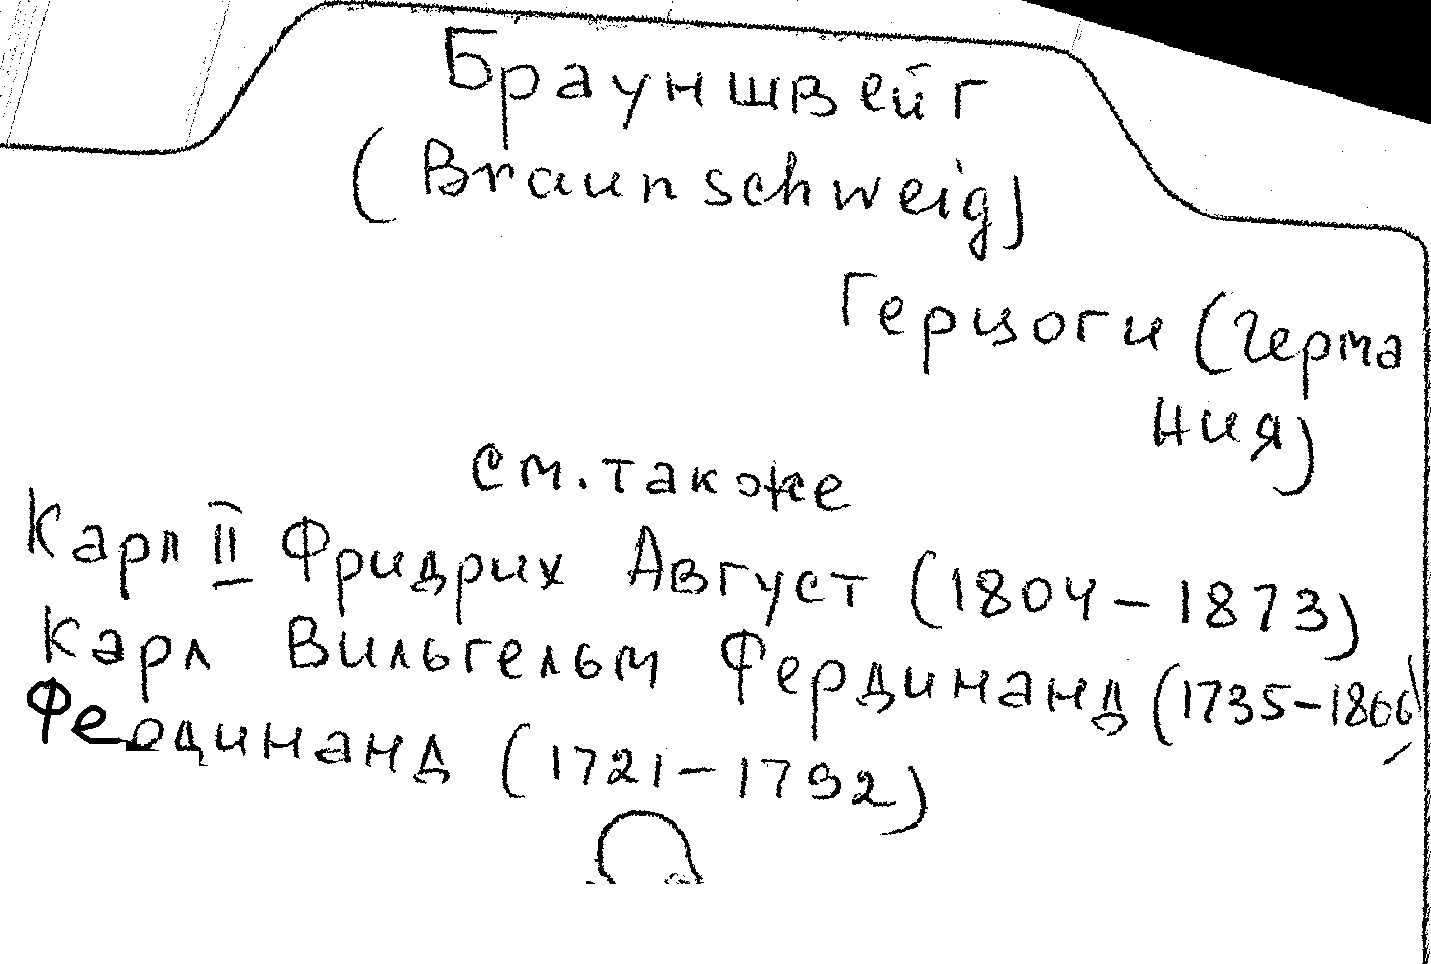 Брауншвейг
(Braunschweig)
Герцоги (Герма
ния)
см. также
Карл II Фридрих Август (1804-1873)
Карл Вильгельм Фердинанд (1735-1806)
Фердинанд (1721-1792)